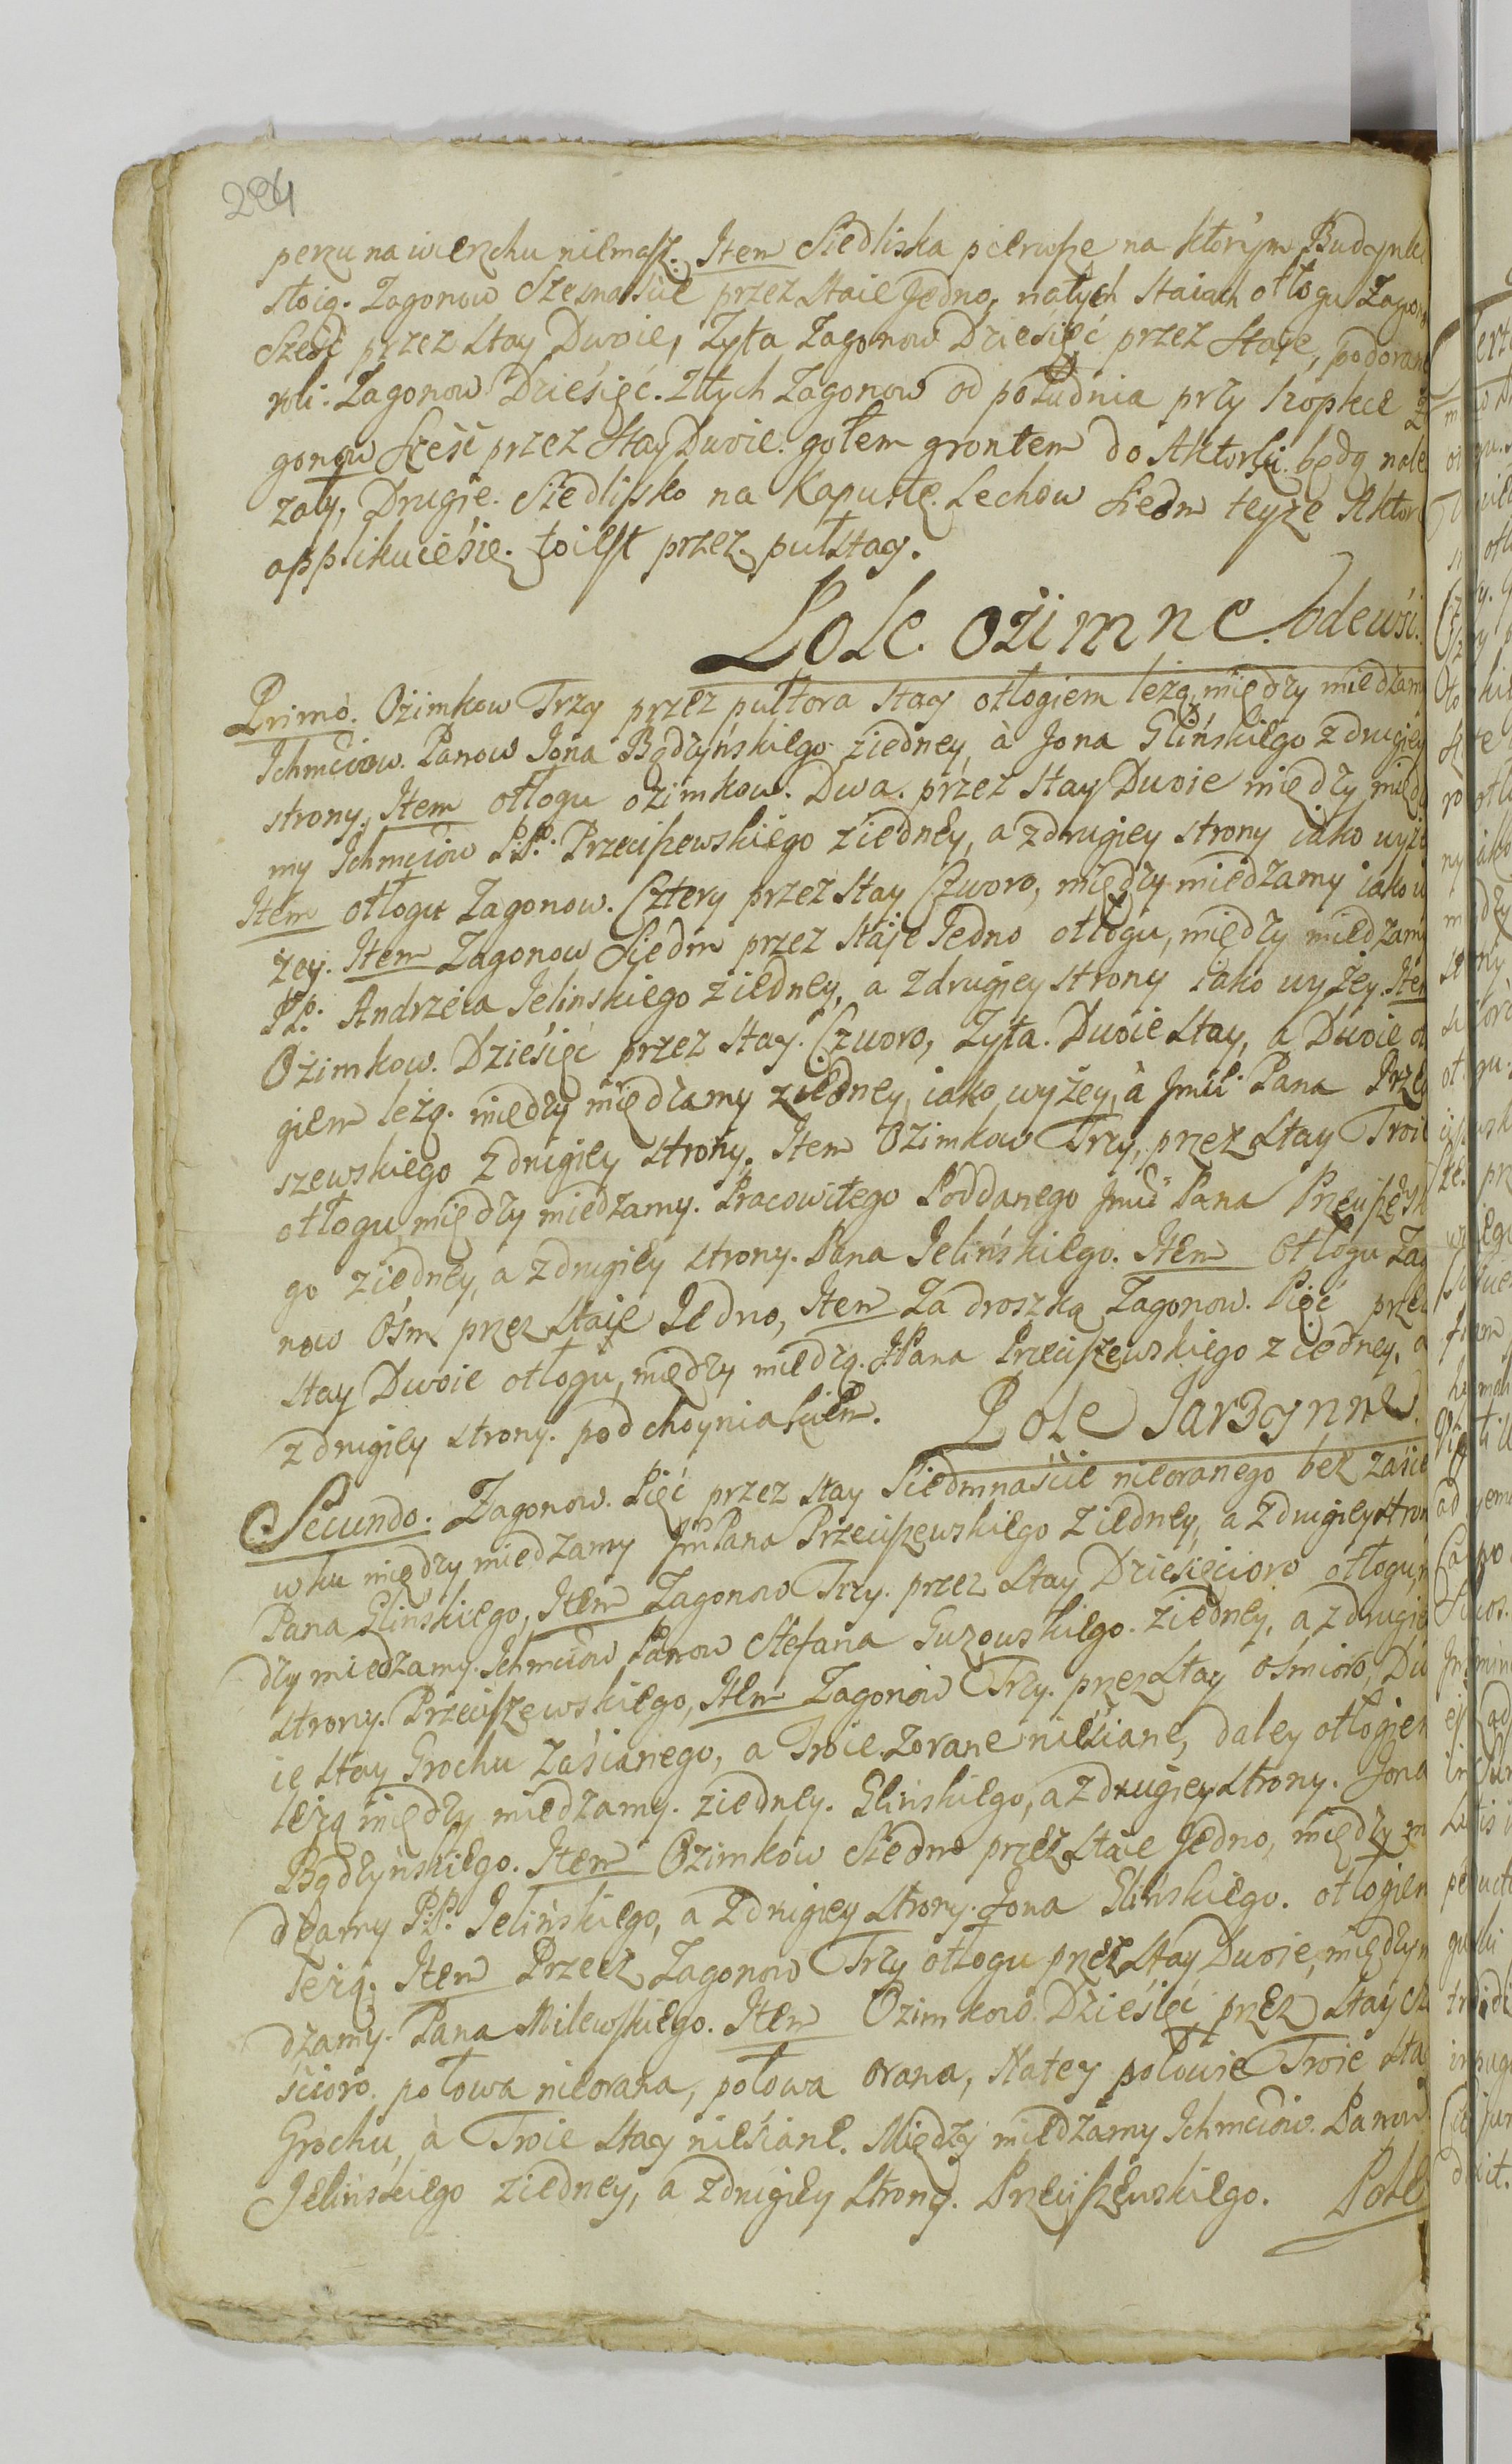 284
perzu na wierzchu niemasz. Item Siedliska pierwsze na ktorym Budynki
stoią. Zagonow Szesnascie przez staie Jedno, natych staiach otłogu Zagon
Sześć przez stay Dwoie, Zyta Zagonow Dziesięć przez Staje, podorane
roli. Zagonow Dziesięć. Ztych Zagonow od południa przy kopkce Z
gonow Sześć przez Stay Dwoie. gołem grontem do Aktorki będą nale
zały, Drugie. Siedlisko na Kapustę. Lechow Siedm teyże Aktor
applikuie się. to iest przez pułstay.
Pole ozimne. odewsi.
Primo. Ozimkow Trzy przez pułtora stay otłogiem leżą, między miedzami
Ichmciow. Panow Jona Bądzyńskiego ziedney, à Jona Glińskiego z drugiey
strony, Item otłogu ozimkow. Dwa. przez stay Dwoie między miedz
my Ichmciow P.P. Przeciszewskiego ziedney, a zdrugiey strony iako wyże
Item otłogu Zagonow. Cztery przez Stay Czworo, między miedzamy iako w
żey. Item Zagonow Siedm przez Staje Jedno otłogu, między miedzamy
PP. Andrzeia Jelinskiego ziedney, a zdrugiey strony iako wyżey. Item
Ozimkow. Dziesięć przez stay. Czworo, Zyta. Dwoie stay, a Dwoie ot
giem leżą. między miedzamy ziedney, iako wyżey, à Jmci Pana Prze
szewskiego z drugiey strony. Item Ozimkow Trzy, przez stay Troie
otłogu między miedzamy. Pracowitego Poddanego Jmci Pana Przeciszews
go ziedney, a zdrugiey strony. Pana Jelińskiego. Item Otłogu Zag
now Ośm przez Staie Jedno, Item Za droszką Zagonow. Pięć przez
stay Dwoie otłogu, między miedzą. JPana Przeciszewskiego ziedney, a
z drugiey strony. pod choyniakiem. Pole Jarzynne.
Secundo. Zagonow. Pięć przez stay Siedmnaście nieoranego bez zasie
wku między miedzamy Jm Pana Przeciszewskiego ziedney, a zdrugiey stron
Pana Glińskiego, Item Zagonow Trzy. przez stay Dziesięcioro otłogu,
dzy miedzamy. Ichmciow Panow Stefana Guzowskiego. ziedney, a zdrugie
strony. Przeciszewskiego, Item Zagonow Trzy. przez stay ośmioro, Dw
ie stay Grochu Zasianego, a Troie. Zorane niesiane, daley otłogiem
leżą między miedzamy. ziedney. Glińskiego, a zdrugiey strony. Jona
Bądzyńskiego. Item Ozimkow Siedm przez staie Jedno, między m
dzamy P.P. Jelińskiego, a zdrugiey strony. Jona Glińskiego. otłogiem
leżą. Item Przecz Zagonow Trzy otłogu przez stay Dwoie, między m
dzamy. Pana Milewskiego. Item Ozimkow Dziesięć przez stay sz
ścioro. połowa nieorana, połowa orana, Natey połowie Troie Sta
Grochu, à Troie stay niesiane. Między miedzamy Ichmciow. Panow
Jelińskiego ziedney, a zdrugiey strony. Przeciszewskiego. Pole